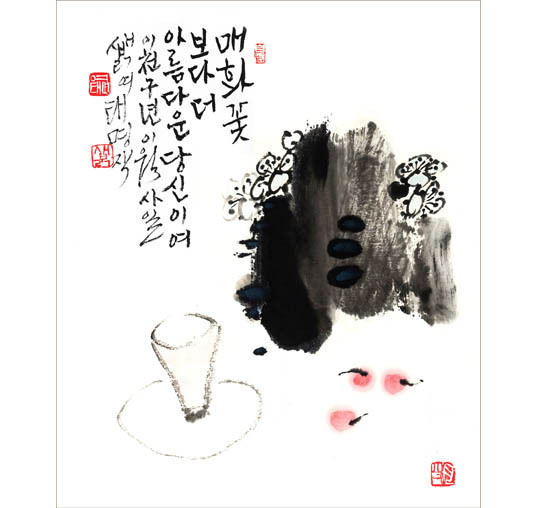 매화꽃
보다 더
아름다운 당신이여
이천구년 이월 사일
여태명 작